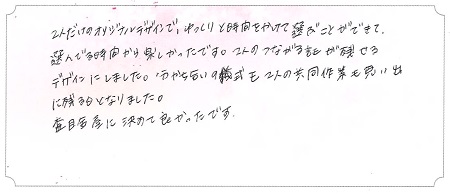 2人だけのオリジナルデザインで、ゆっくりと時間をかけて選ぶことができて、
選んでる時間から楽しかったです。2人のつながる証が残せる
デザインにしました。分かち合いの儀式も2人の共同作業も思い出
に残る日となりました。
杢目金屋に決めて良かったです。